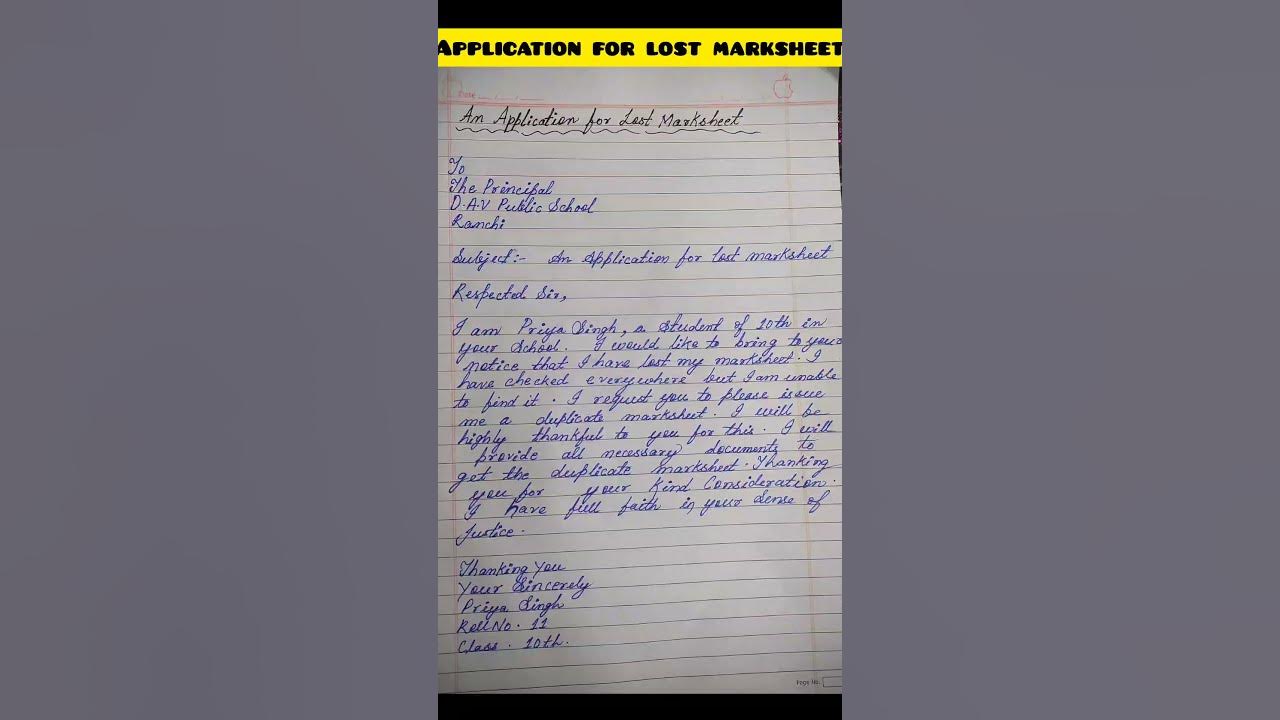 APPLICATION FOR LOST MARKSHEET
Date
An Application for Lost Marksheet
To
The Principal
D.A.V Public School
Ranchi
Subject:- An Application for lost marksheet
Respected Sir,
I am Priya Singh, a student of 10th in
your School. I would like to bring to your
notice that I have lost my marksheet. I
have checked everywhere but I am unable
to find it. I requst you to please issue
me a duplicate marksheet. I will be
highly thankful to you for this. I will
provide all necessary documents to
get the duplicate marksheet. Thanking
you for your kind Consideration.
I have full faith in your sense of
Justice.
Thanking You
Your Sincerely
Priya Singh
Roll No. 11
Class. 10th.
Page No.